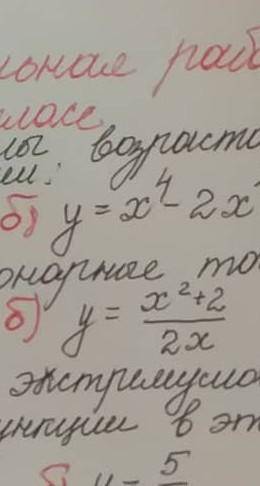 льная раб
ласс
лы возраста
ии:
б) y = x⁴ - 2x
онарные то
б) y = (x²+2)/(2x)
экстремумо
ункции в эт
5